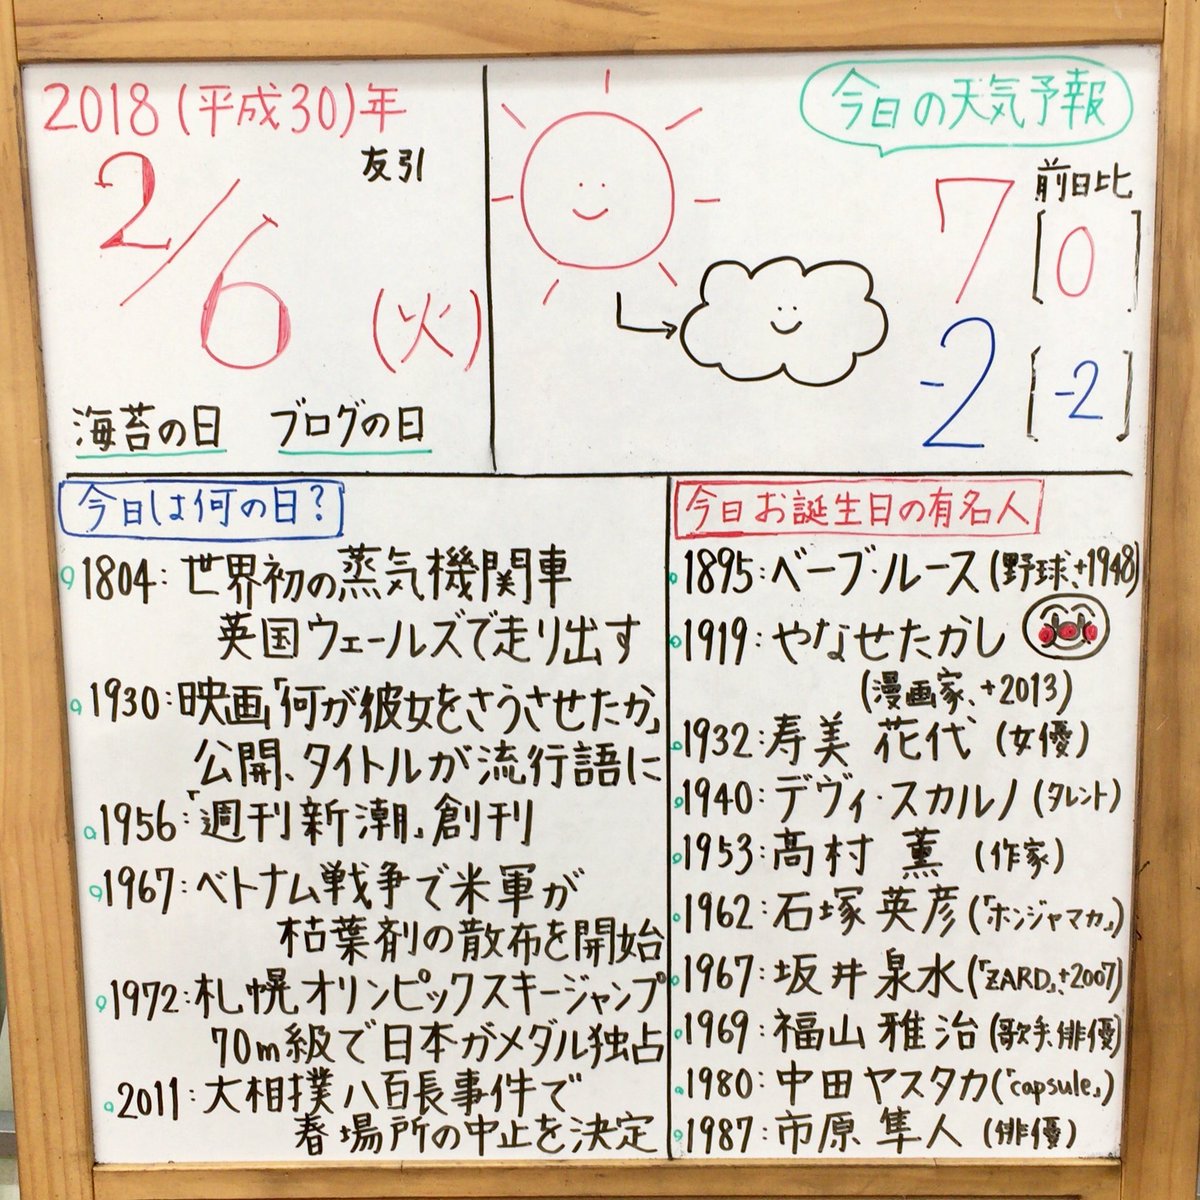 2018(平成30)年
友引
2/6
(火)
海苔の日 ブログの日
今日の天気予報
前日比
7 [0]
-2 [-2]
今日は何の日?
1804:世界初の蒸気機関車
英国ウェールズで走り出す
1930:映画「何が彼女をさうさせたか」
公開、タイトルが流行語に
1956:「週刊新潮」創刊
1967:ベトナム戦争で米軍が
枯葉剤の散布を開始
1972:札幌オリンピックスキージャンプ
70m級で日本がメダル独占
2011:大相撲八百長事件で
春場所の中止を決定
今日お誕生日の有名人
1895:ベーブ・ルース(野球、±1948)
1919:やなせたかし
(漫画家、±2013)
1932:寿美 花代(女優)
1940:デヴィ・スカルノ(タレント)
1953:髙村 薫(作家)
1962:石塚 英彦(「ホンジャマカ」)
1967:坂井 泉水(「ZARD」、±2007)
1969:福山 雅治(歌手、俳優)
1980:中田ヤスタカ(「capsule」)
1987:市原 隼人(俳優)